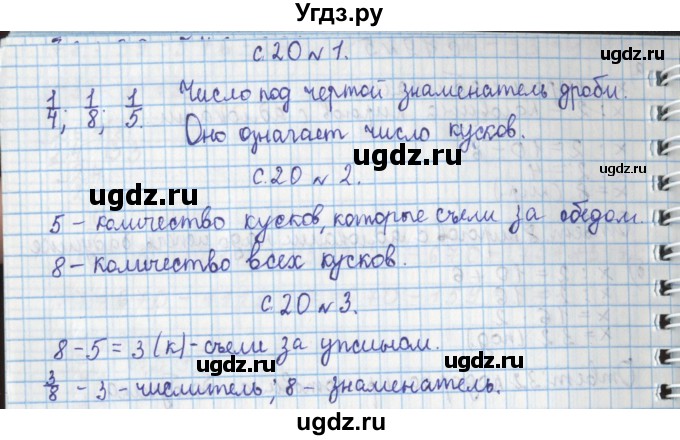 Угдз.ру
с. 20 № 1.
1/4; 1/8; 1/5. Число под чертой знаменатель дроби.
Оно означает число кусков.
ugdz.ru ugdz.ru
с. 20 № 2.
ugdz.ru
5 - количество кусков, которые съели за обедом.
8 - количество всех кусков.
ugdz.ru ugdz.ru
с. 20 № 3.
8 - 5 = 3 (к) - съели за ужином.
ugdz.ru
3/8 - 3 - числитель; 8 - знаменатель.
ugdz.ru